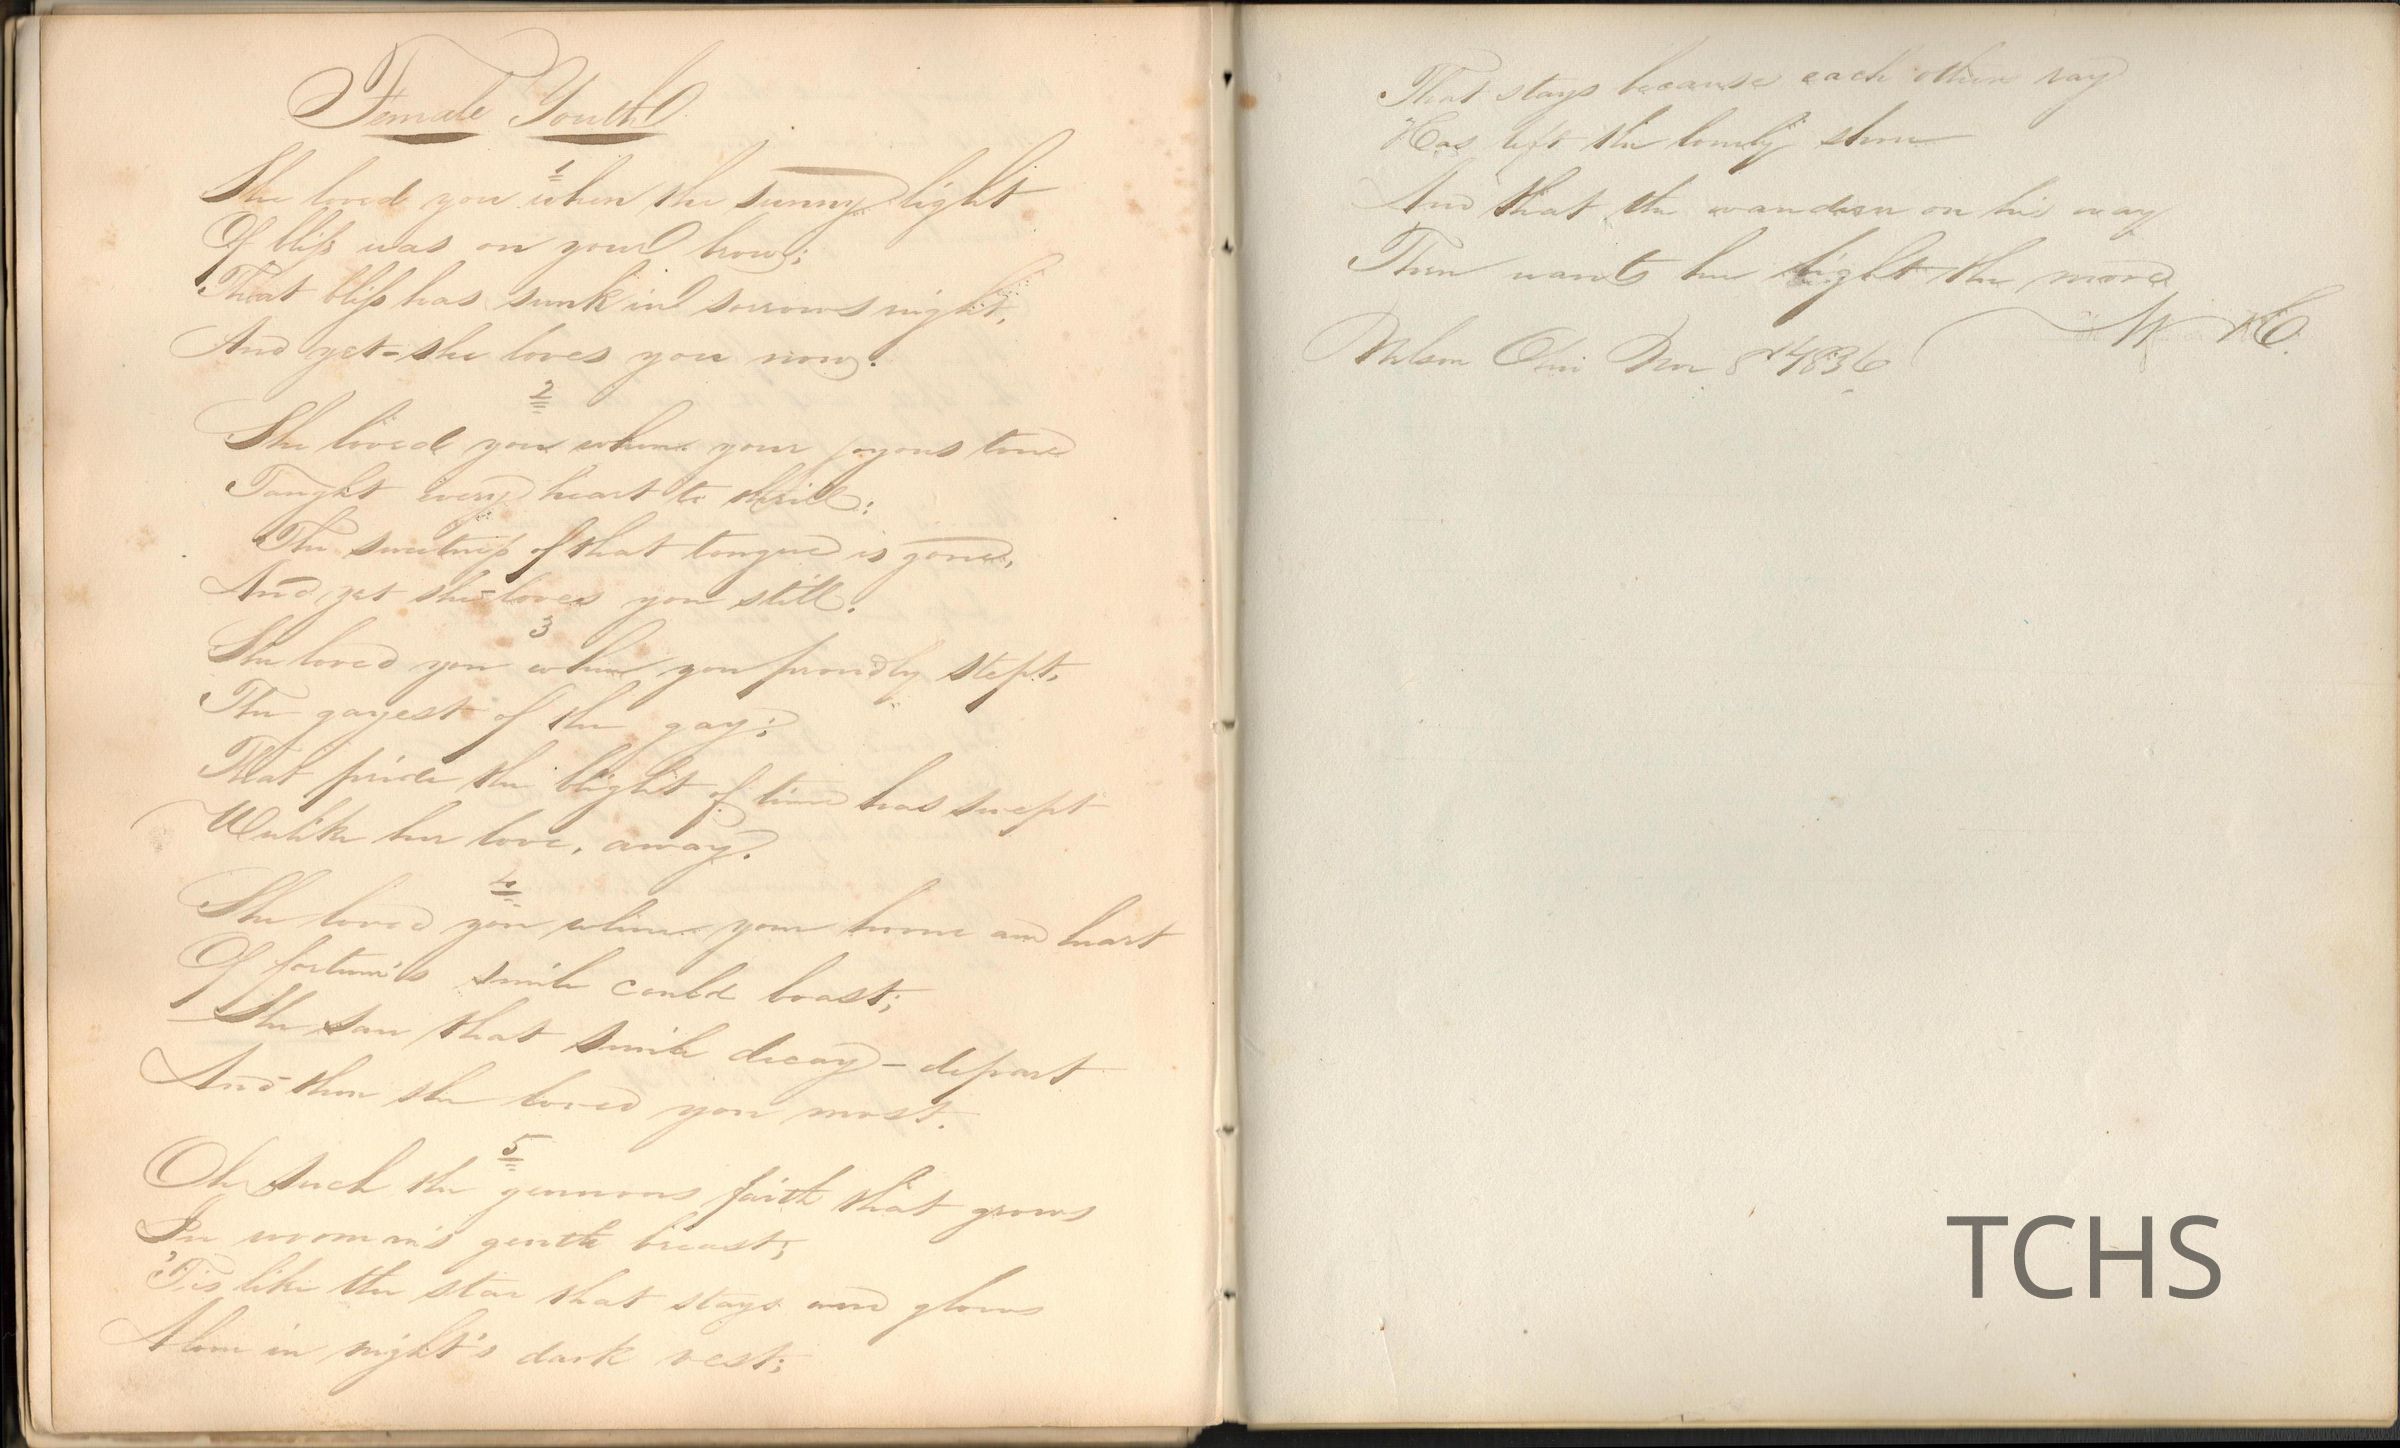 Female Youth
1
She loved you when the sunny light
Of bliss was on your brow;
That bliss has sunk in sorrows night,
And yet - she loves you now.
2
She loved you when your joyous tone
Taught every heart to thrill;
The sweetness of that tongue is gone,
And yet she loves you still.
3
She loved you when you proudly stept,
The gayest of the gay;
That pride the blight of time has swept
Unlike her love, away.
4
She loved you when your home and heart
Of fortune's smile could boast;
She saw that smile decay - depart
And then she loved you most.
5
Oh such the generous faith that grows
In woman's gentle breast;
'Tis like the star that stays and glows
Alone in night's dark vest;
That stays because each other ray
Has left the lonely shore
And that the wanderer on his way
Then wants her light the more
Nelson Ohio Nov 8 1836
TCHS